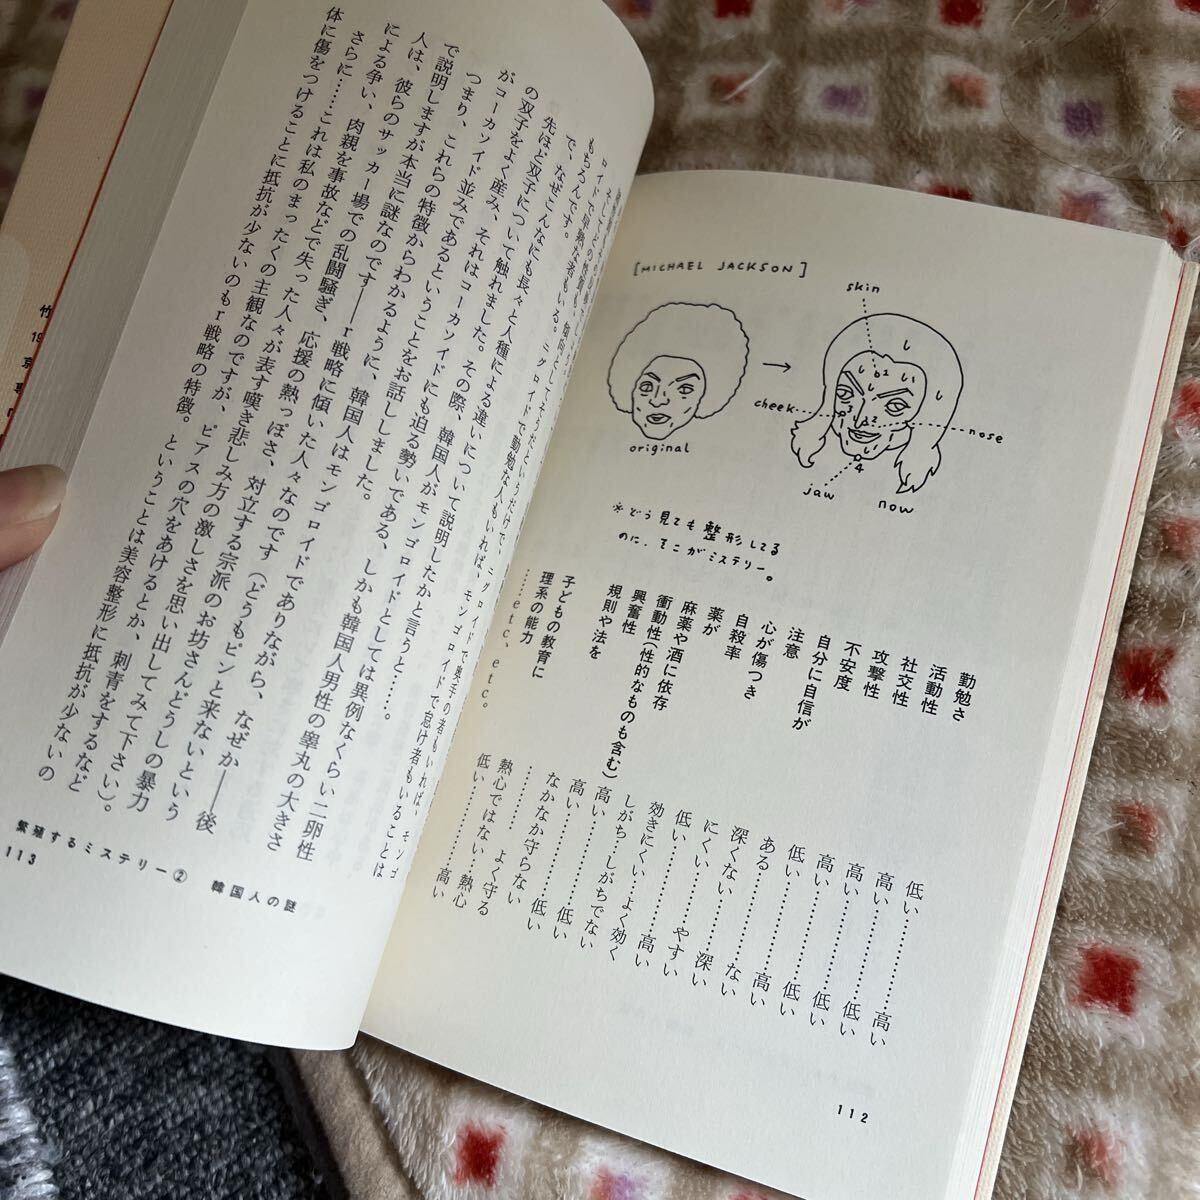 [MICHAEL JACKSON]
skin
cheek
nose
original
jaw
now
1
2
3
4
※どう見ても整形してる
のに、そこがミステリー。
勤勉さ 低い…………高い
活動性 高い…………低い
社交性 高い…………低い
攻撃性 高い…………低い
不安度 低い…………高い
自分に自信が ある…………ない
注意 深くない………深い
心が傷つき にくい………やすい
自殺率 低い…………高い
薬が 効きにくい……よく効く
麻薬や酒に依存 しがち…しがちでない
衝動性(性的なものも含む) 高い…………低い
興奮性 高い…………低い
規則や法を なかなか守らない………よく守る
子どもの教育に 熱心ではない…熱心
理系の能力 低い…………高い
……etc、etc。
112
ロイドで早熟な者もいる。ニグロイドで勤勉な人もいれば、モンゴロイドで怠け者もいることは
もちろんです。
で、なぜこんなにも長々と人種による違いについて説明したかと言うと……。
先ほど双子について触れました。その際、韓国人がモンゴロイドとしては異例なくらい二卵性
の双子をよく産み、それはコーカソイドにも迫る勢いである、しかも韓国人男性の睾丸の大きさ
がコーカソイド並みであるということをお話ししました。
つまり、これらの特徴からわかるように、韓国人はモンゴロイドでありながら、なぜか――後
で説明しますが本当に謎なのです――r戦略に傾いた人々なのです(どうもピンと来ないという
人は、彼らのサッカー場での乱闘騒ぎ、応援の熱っぽさ、対立する宗派のお坊さんどうしの暴力
による争い、肉親を事故などで失った人々が表す嘆き悲しみ方の激しさを思い出してみて下さい)。
さらに……これは私のまったくの主観なのですが、ピアスの穴をあけるとか、刺青をするなど
体に傷をつけることに抵抗が少ないのもr戦略の特徴。ということは美容整形に抵抗が少ないの
繁殖するミステリー② 韓国人の謎
113